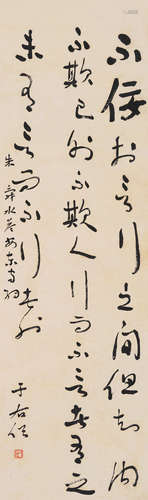 不佞於言行之間但知內
不欺己外不欺人行而不言者有之
未有言而不行者也
朱舜水答安東守約
于右任